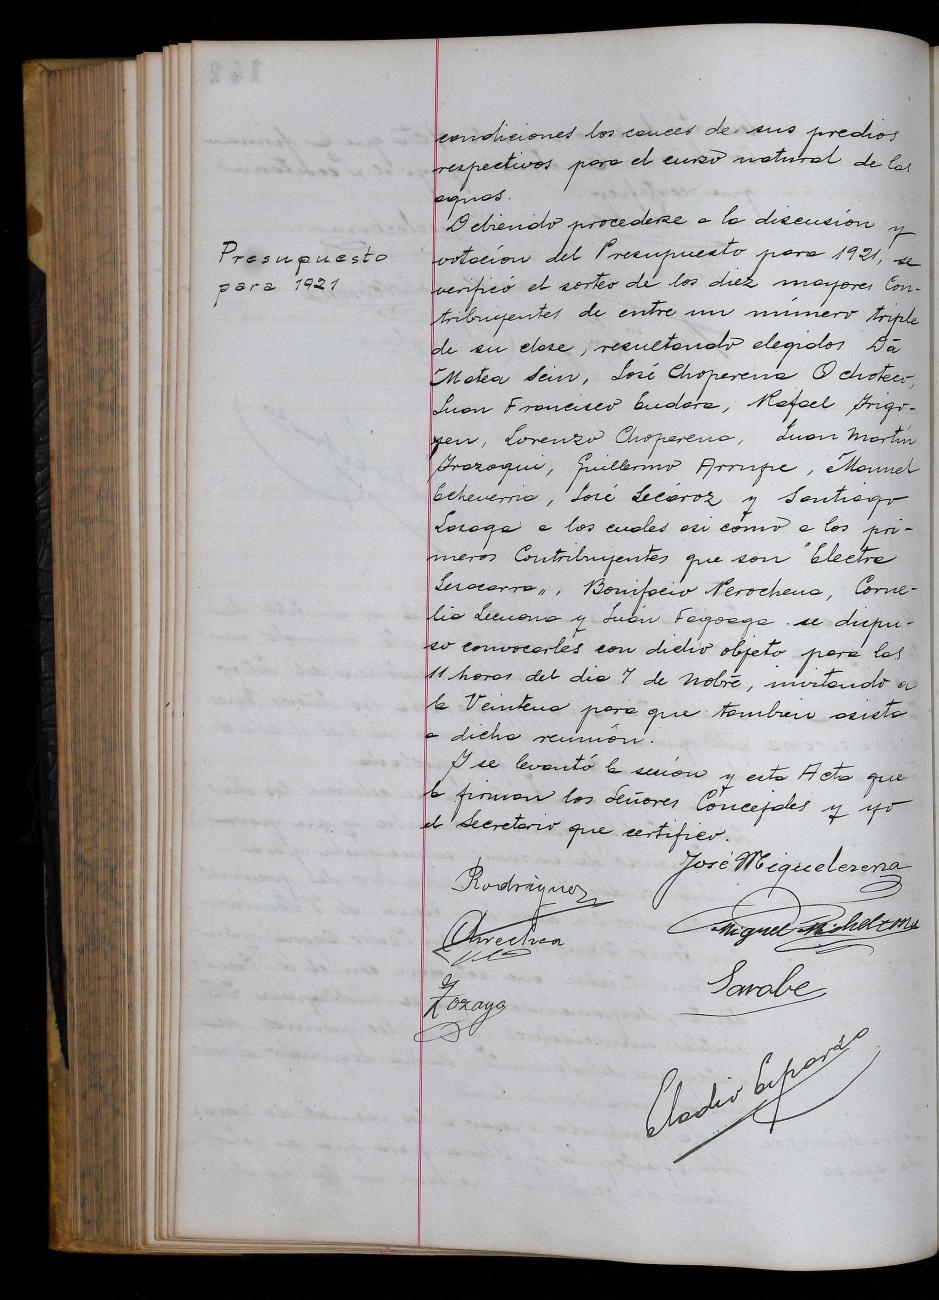 condiciones los cauces de sus predios
respectivos para el curso natural de las
aguas.
Presupuesto
para 1921
Debiendo procederse a la discusión y
votación del Presupuesto para 1921, se
verificó el sorteo de los diez mayores Con-
tribuyentes de entre un número triple
de su clase, resultando elegidos Dª
Matea Sein, José Choperena Ochoteco,
Juan Francisco Endara, Rafael Irigo-
yen, Lorenzo Choperena, Juan Martín
Irazoqui, Guillermo Arrupe, Manuel
Echeverria, José Lecároz y Santiago
Lasaga a los cuales asi cómo a los pri-
meros Contribuyentes que son "Electra
Lesacarra", Bonifacio Perochena, Corne-
lia Lecuona y Juán Fagoaga se dispu-
so convocarles con dicho objeto para las
11 horas del dia 7 de Nobre, invitando a
la Veintena para que tambien asista
a dicha reunión.
Y se levantó la sesión y esta Acta que
la firman los Señores Concejales y yo
el Secretario que certifico.
José Miguelerena
Rodriguez
Miguel Michelena
Zozaya
Sarobe
Eladio Esparza